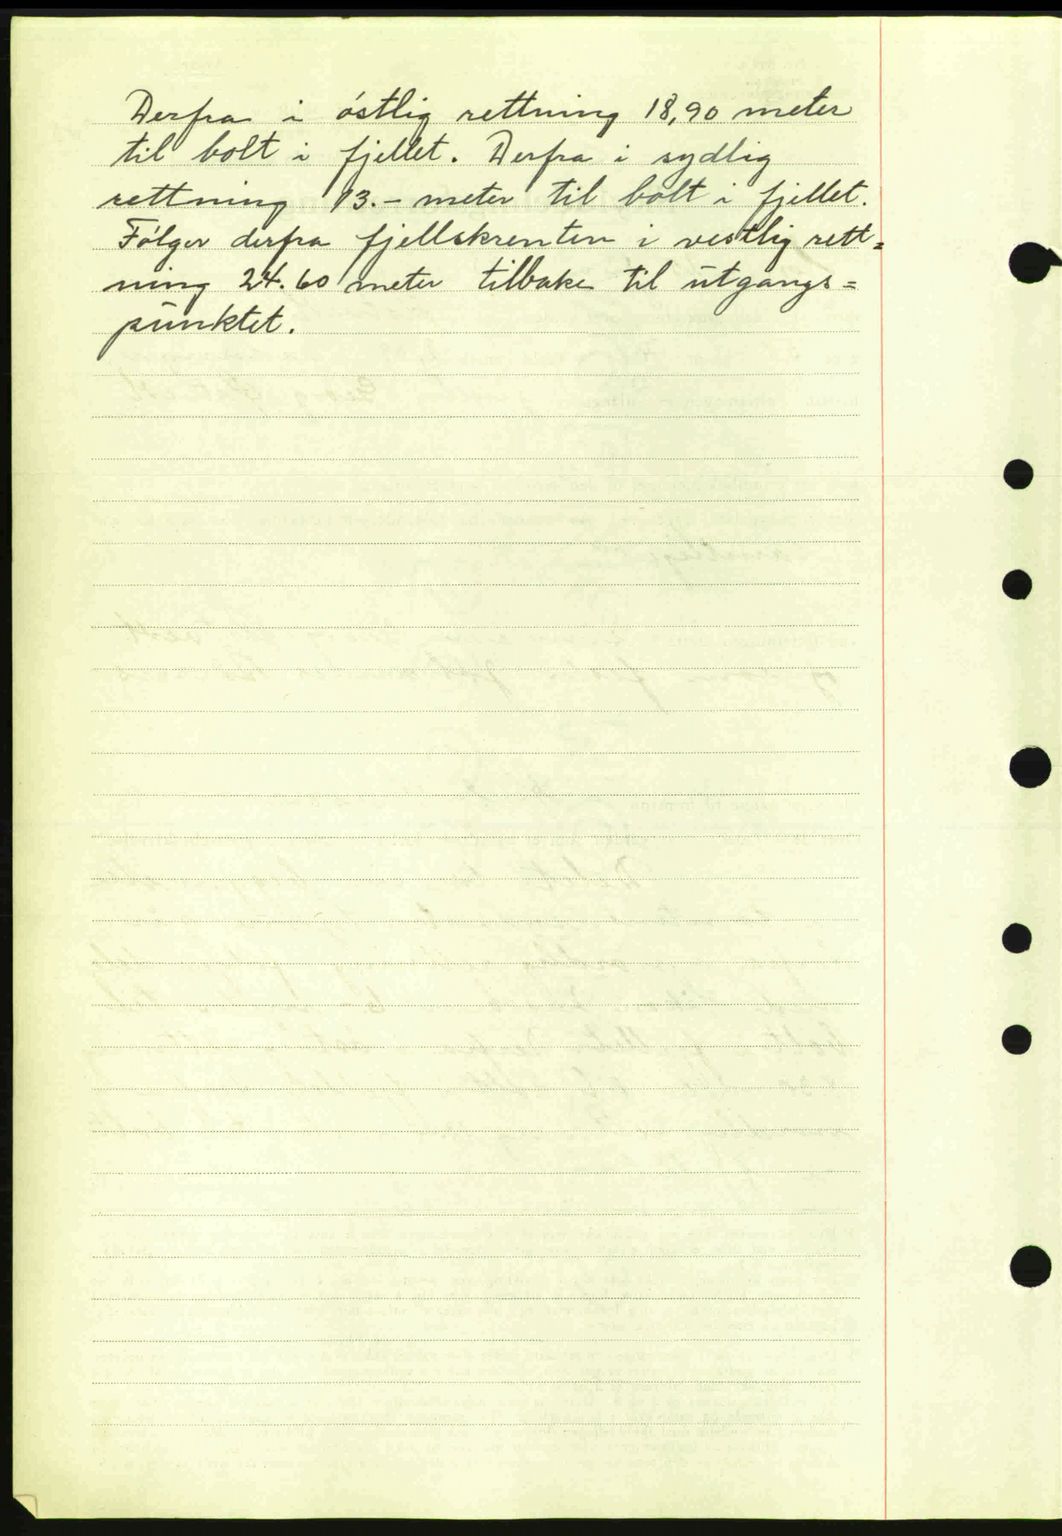 Derfra i østlig rettning 18,90 meter
til bolt i fjellet. Derfra i sydlig
rettning 13.- meter til bolt i fjellet.
Følger derfra fjellskrenten i vestlig rett=
ning 24.60 meter tilbake til utgangs=
punktet.